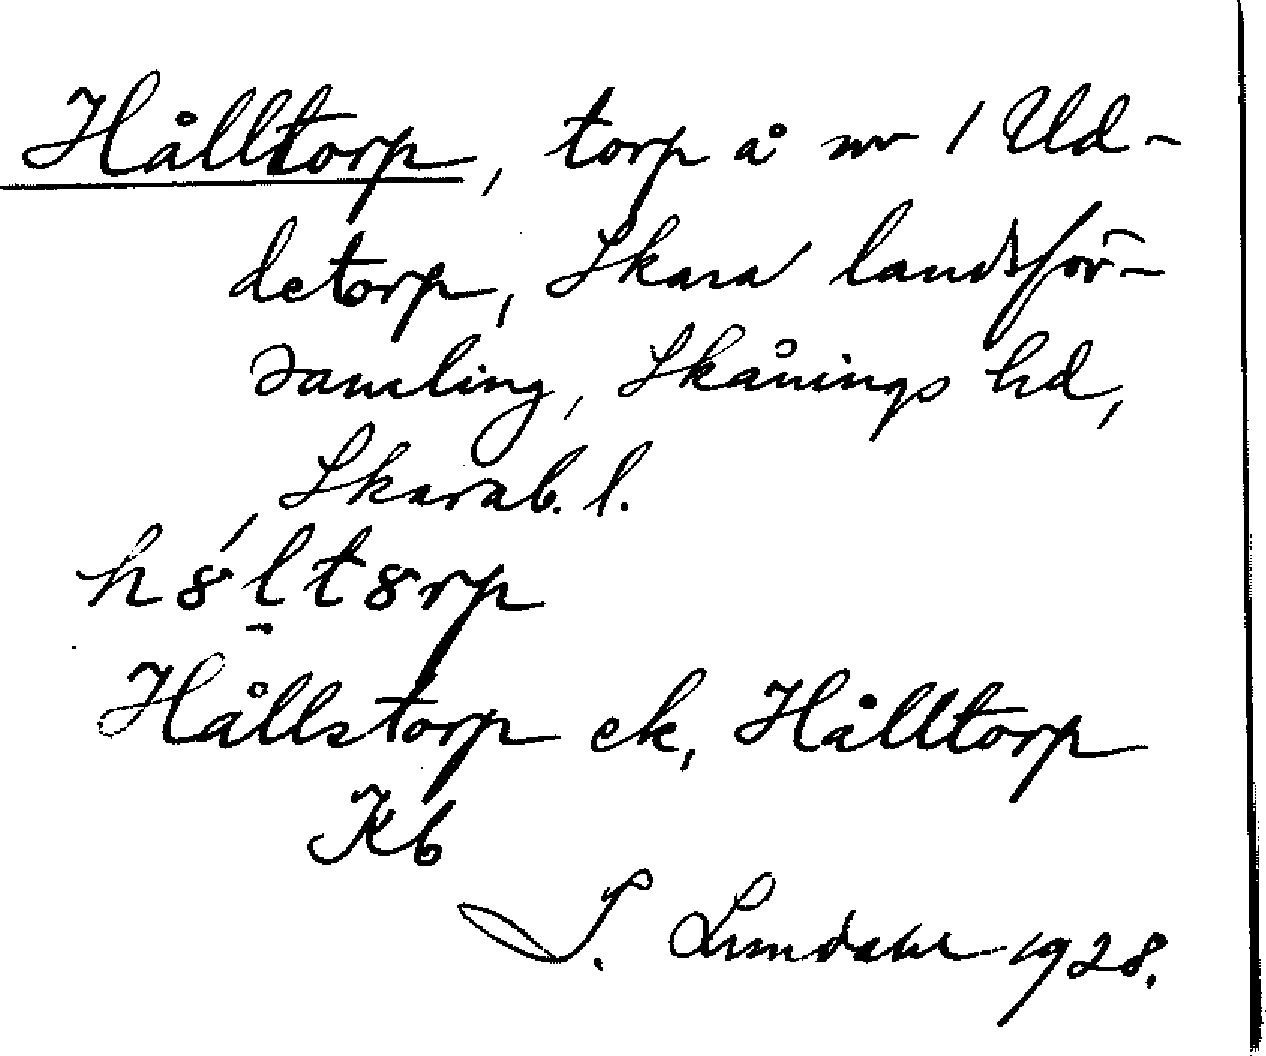 Hålltorp, torp å nr 1 Ud-
detorp, Skara landsför-
samling, Skånings hd,
Skarab. l.
Hållstorp ek, Hålltorp
Kb
I. Lundahl 1928.